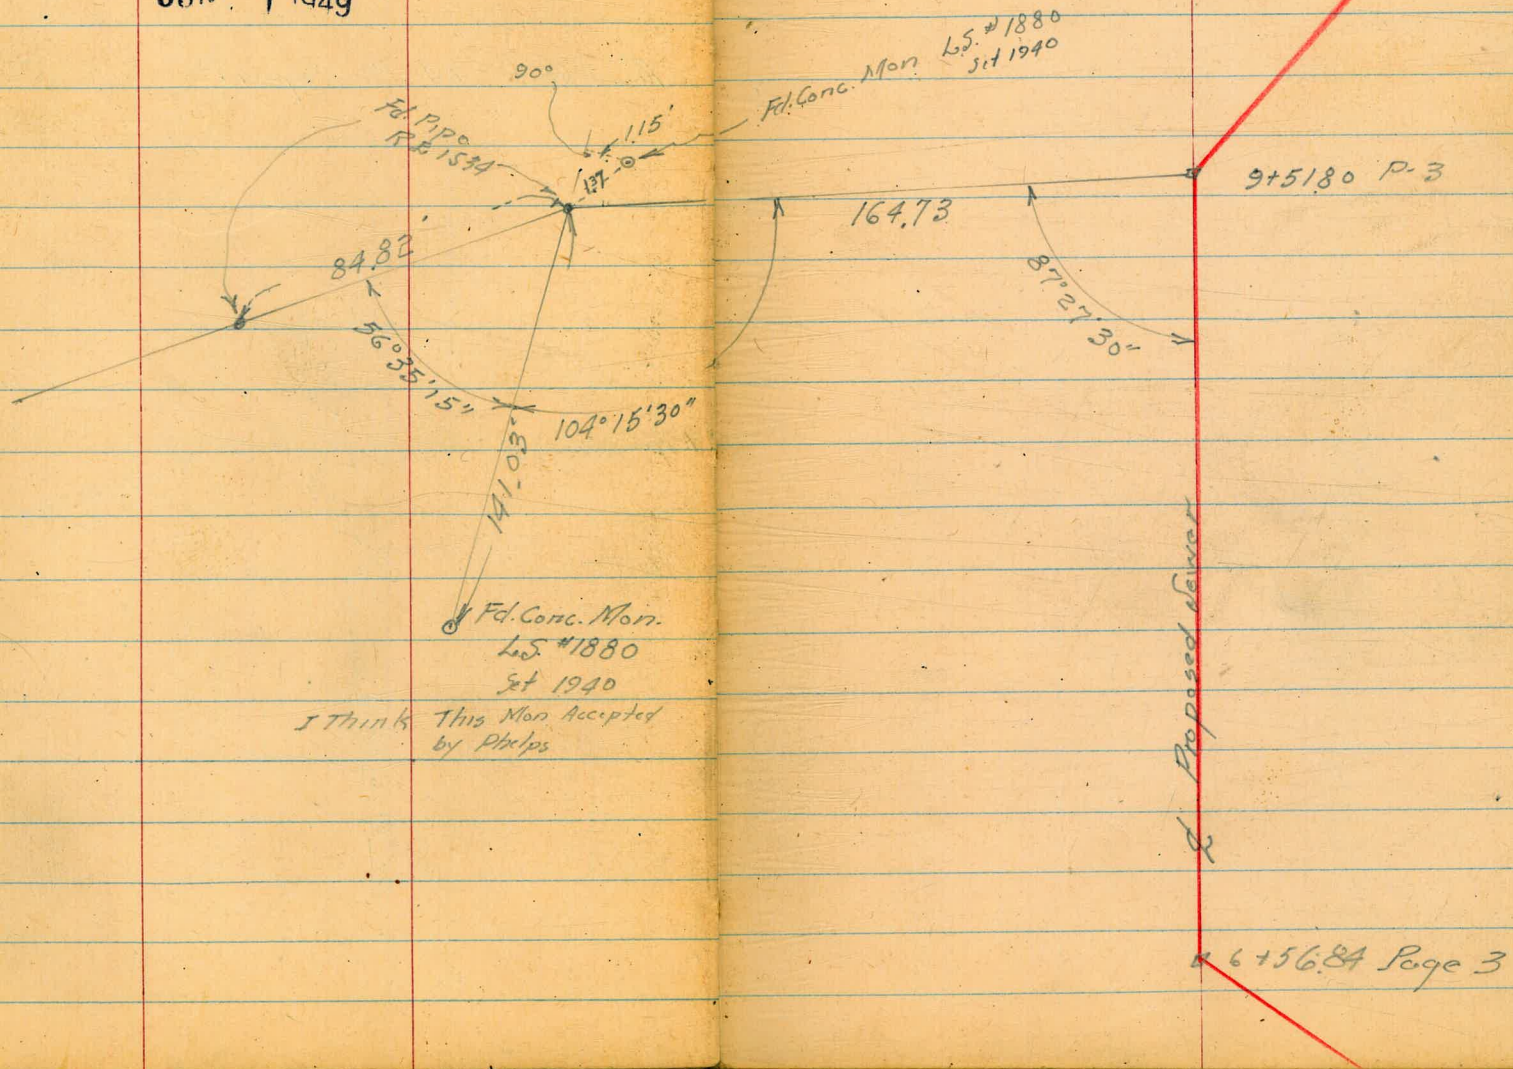 1949
90°
Fd. Pipe
R.E. 1534
1.15'
1.37
Fd. Conc. Mon L.S. #1880
Set 1940
84.82'
56°35'15"
104°15'30"
141.03'
164.73
87°27'30"
9+51.80 P-3
Fd. Conc. Mon.
L.S. #1880
Set 1940
I Think This Mon Accepted
by Phelps
℄ Proposed Sewer
6+56.84 Page 3